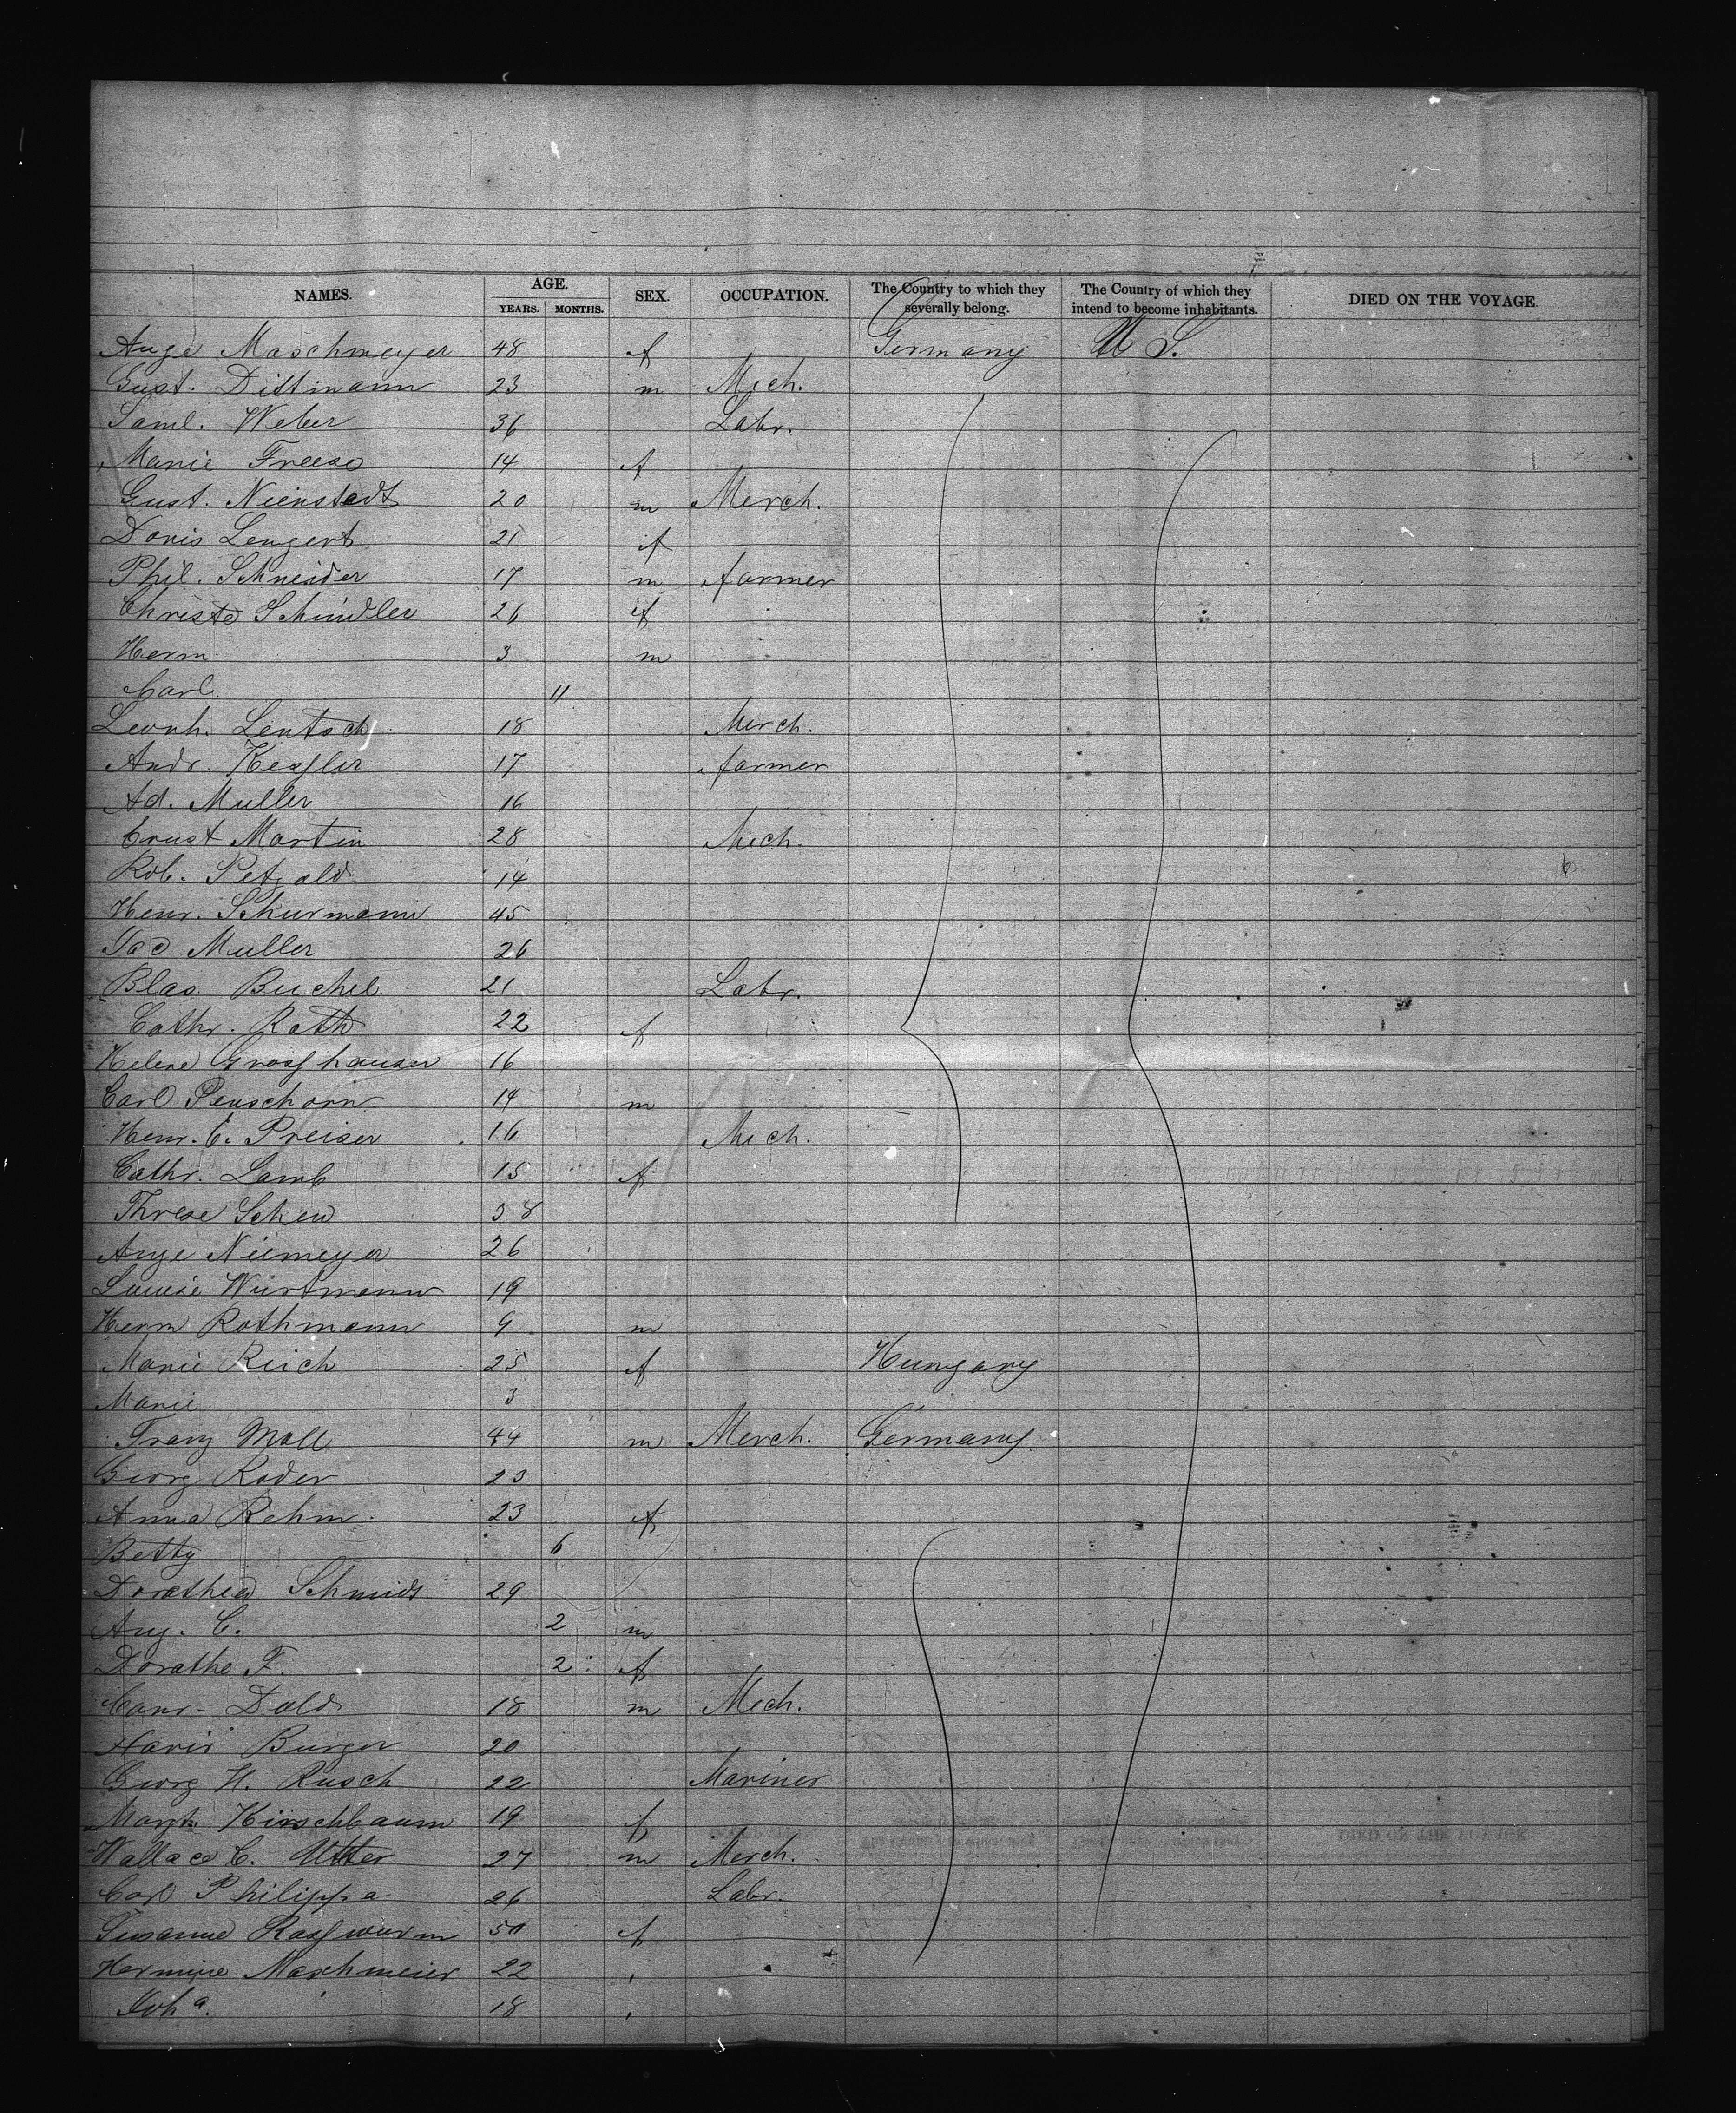 NAMES. AGE. SEX. OCCUPATION. The Country to which they severally belong. The Country of which they intend to become inhabitants. DIED ON THE VOYAGE.
YEARS. MONTHS.
Auge Maschmeyer 48 f Germany U S.
Gust. Dittmann 23 m Mech.
Saml. Weber 36 Labr.
Marie Freese 14 f
Gust. Nienstedt 20 m Merch.
Doris Lengert 21 f
Phil. Schneider 17 m farmer
Christe Schindler 26 f
Herm. 3 m
Carl 11
Leonh. Lentsch 18 Merch.
Andr. Kessler 17 farmer
Ad. Muller 16
Ernst Martin 28 Mech.
Rob. Petzold 14
Henr. Schurmann 45
Jac Muller 26
Blas Buchel 21 Labr.
Cathr. Roth 22 f
Helene Grosshauser 16
Carl Penschorn 14 m
Henr. C. Preiser 16 Mech.
Cathr. Lamb 15 f
Threse Scheu 38
Auge Niemeyer 26
Louise Wurtmann 19
Herm Rothmann 9 m
Marie Reich 25 f Hungary
Marie 3
Franz Moll 44 m Merch. Germany
Georg Roder 23
Anna Rehm. 23 f
Betty 6
Dorothea Schmidt 29
Aug. C. 2 m
Dorothe F. 2 f
Conr. Dold 18 m Mech.
Burger 20
Georg H. Rusch 22 Mariner
Marg. Hirschbaum 19 f
Wallace C. Utter 27 m Merch.
Carl Philippa 26 Labr.
Susanne Rosswurm 50 f
Hermine Maschmeier 22
Joha. 18